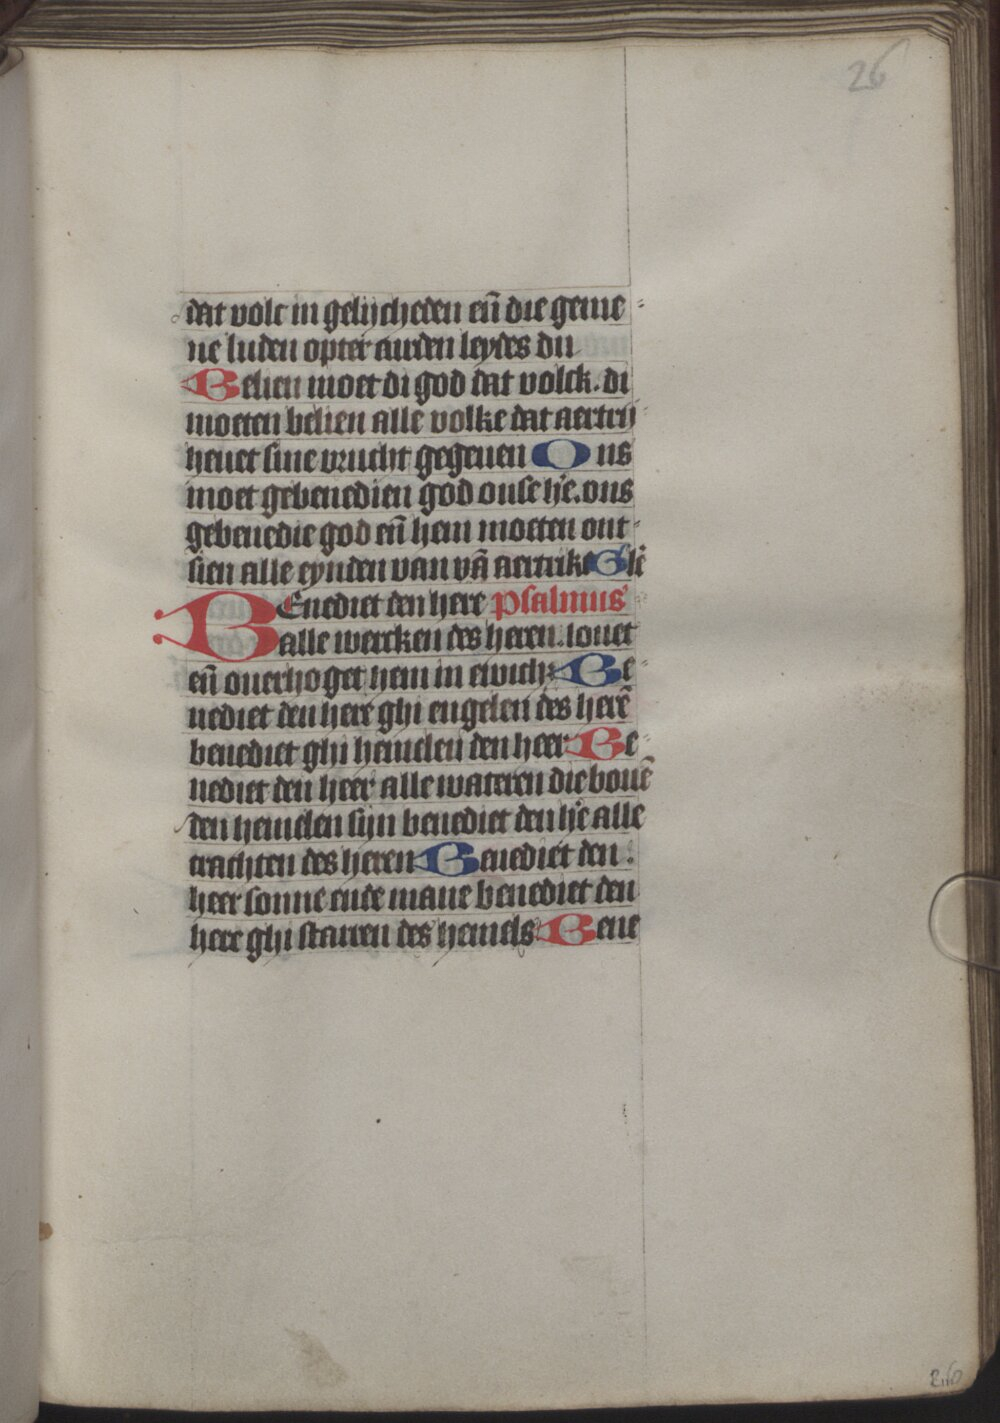 26
dat volc in gelijcheden en̄ die geme⸗
ne luden opter aurden leydes du
Belien moet di god dat volck. di
moeten belien alle volke dat aertrij⸗
heuet sine vrucht gegeuen Ons
moet gebenedien god onse he͛. ons
gebenedie god en̄ hem moeten ont⸗
sien alle eynden van vā aertrike Gl̄e
BEnediet den here Psalmus
alle wercken des heren. louet
en̄ ouerhoget hem in ewich: Be⸗
nediet den here ghi engelen des herē
benediet ghi hemelen den heer Be⸗
nediet den heer alle wateren die bouē
den hemelen sijn benediet den he͛ alle
crachten des heren Benediet den
heer sonne ende mane benediet den
here ghi starren des hemels Bene